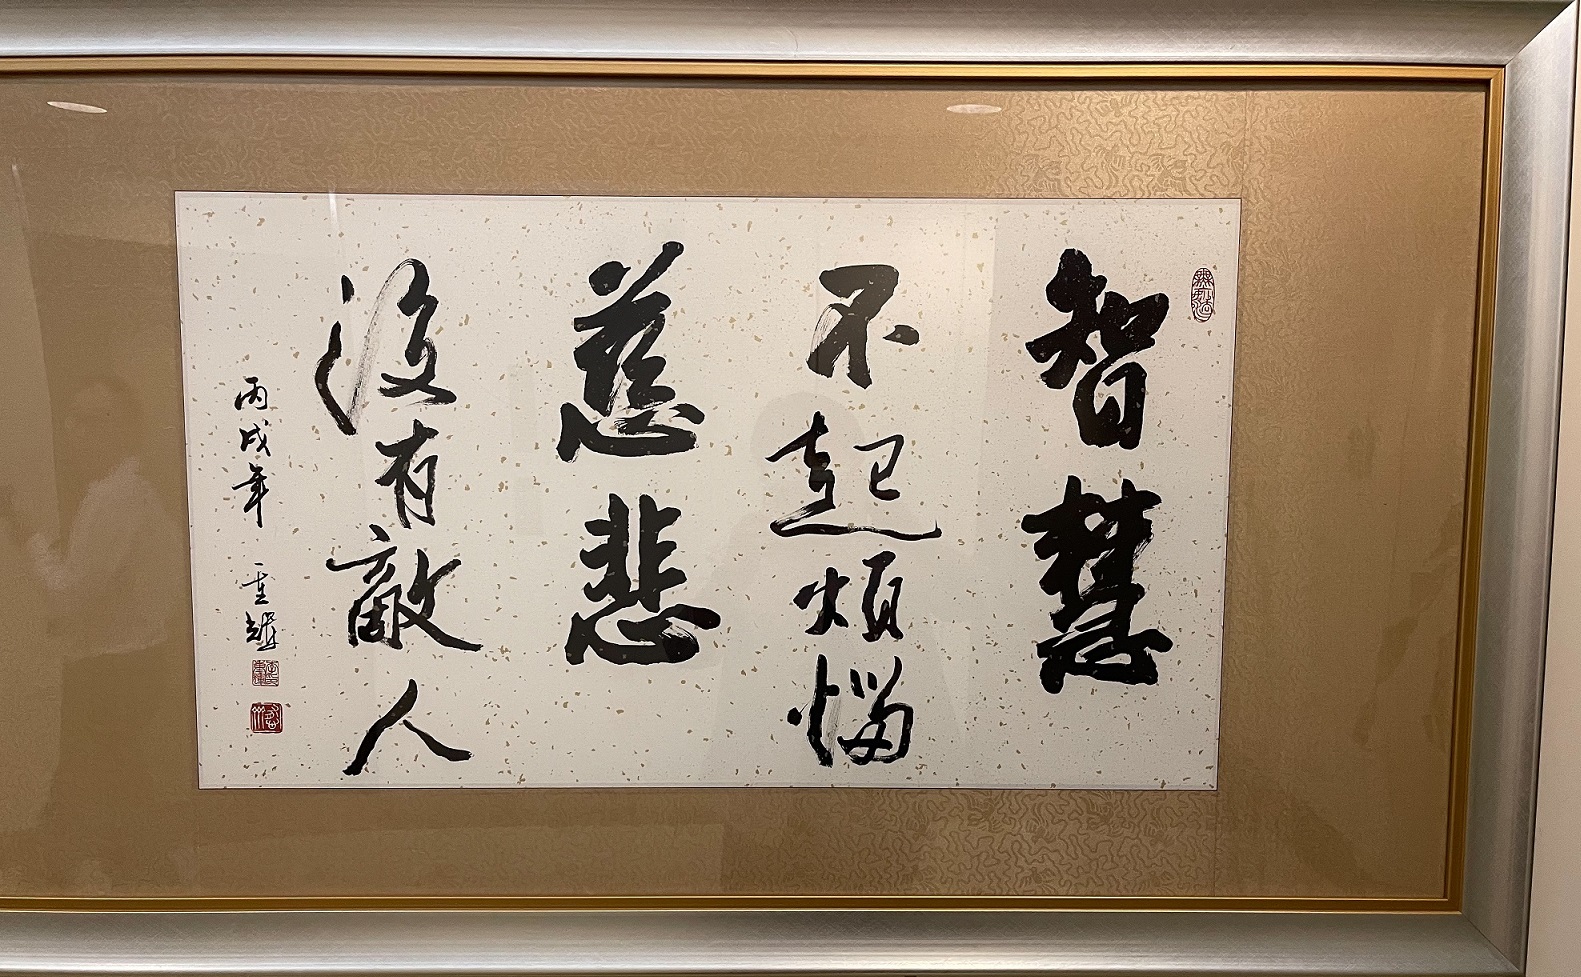 智慧
不起煩惱
慈悲
沒有敵人
丙戌年